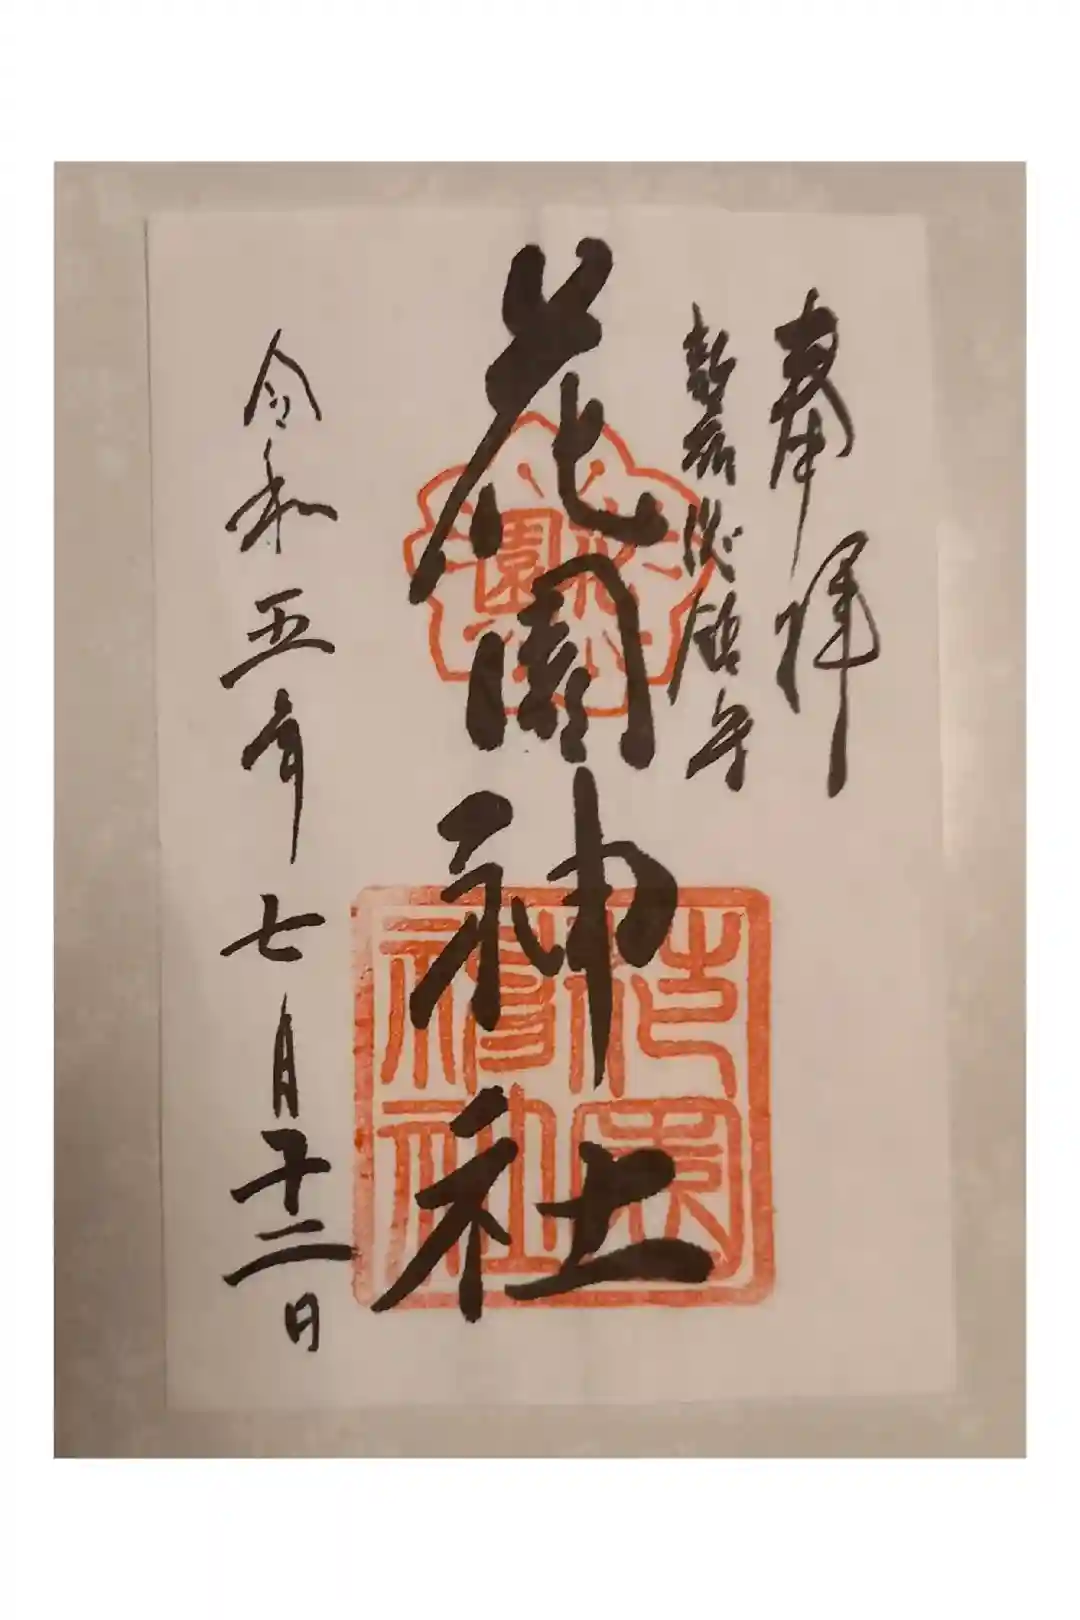 奉拝
新宿総鎮守
花園神社
花園
花園神社
令和五年七月十二日